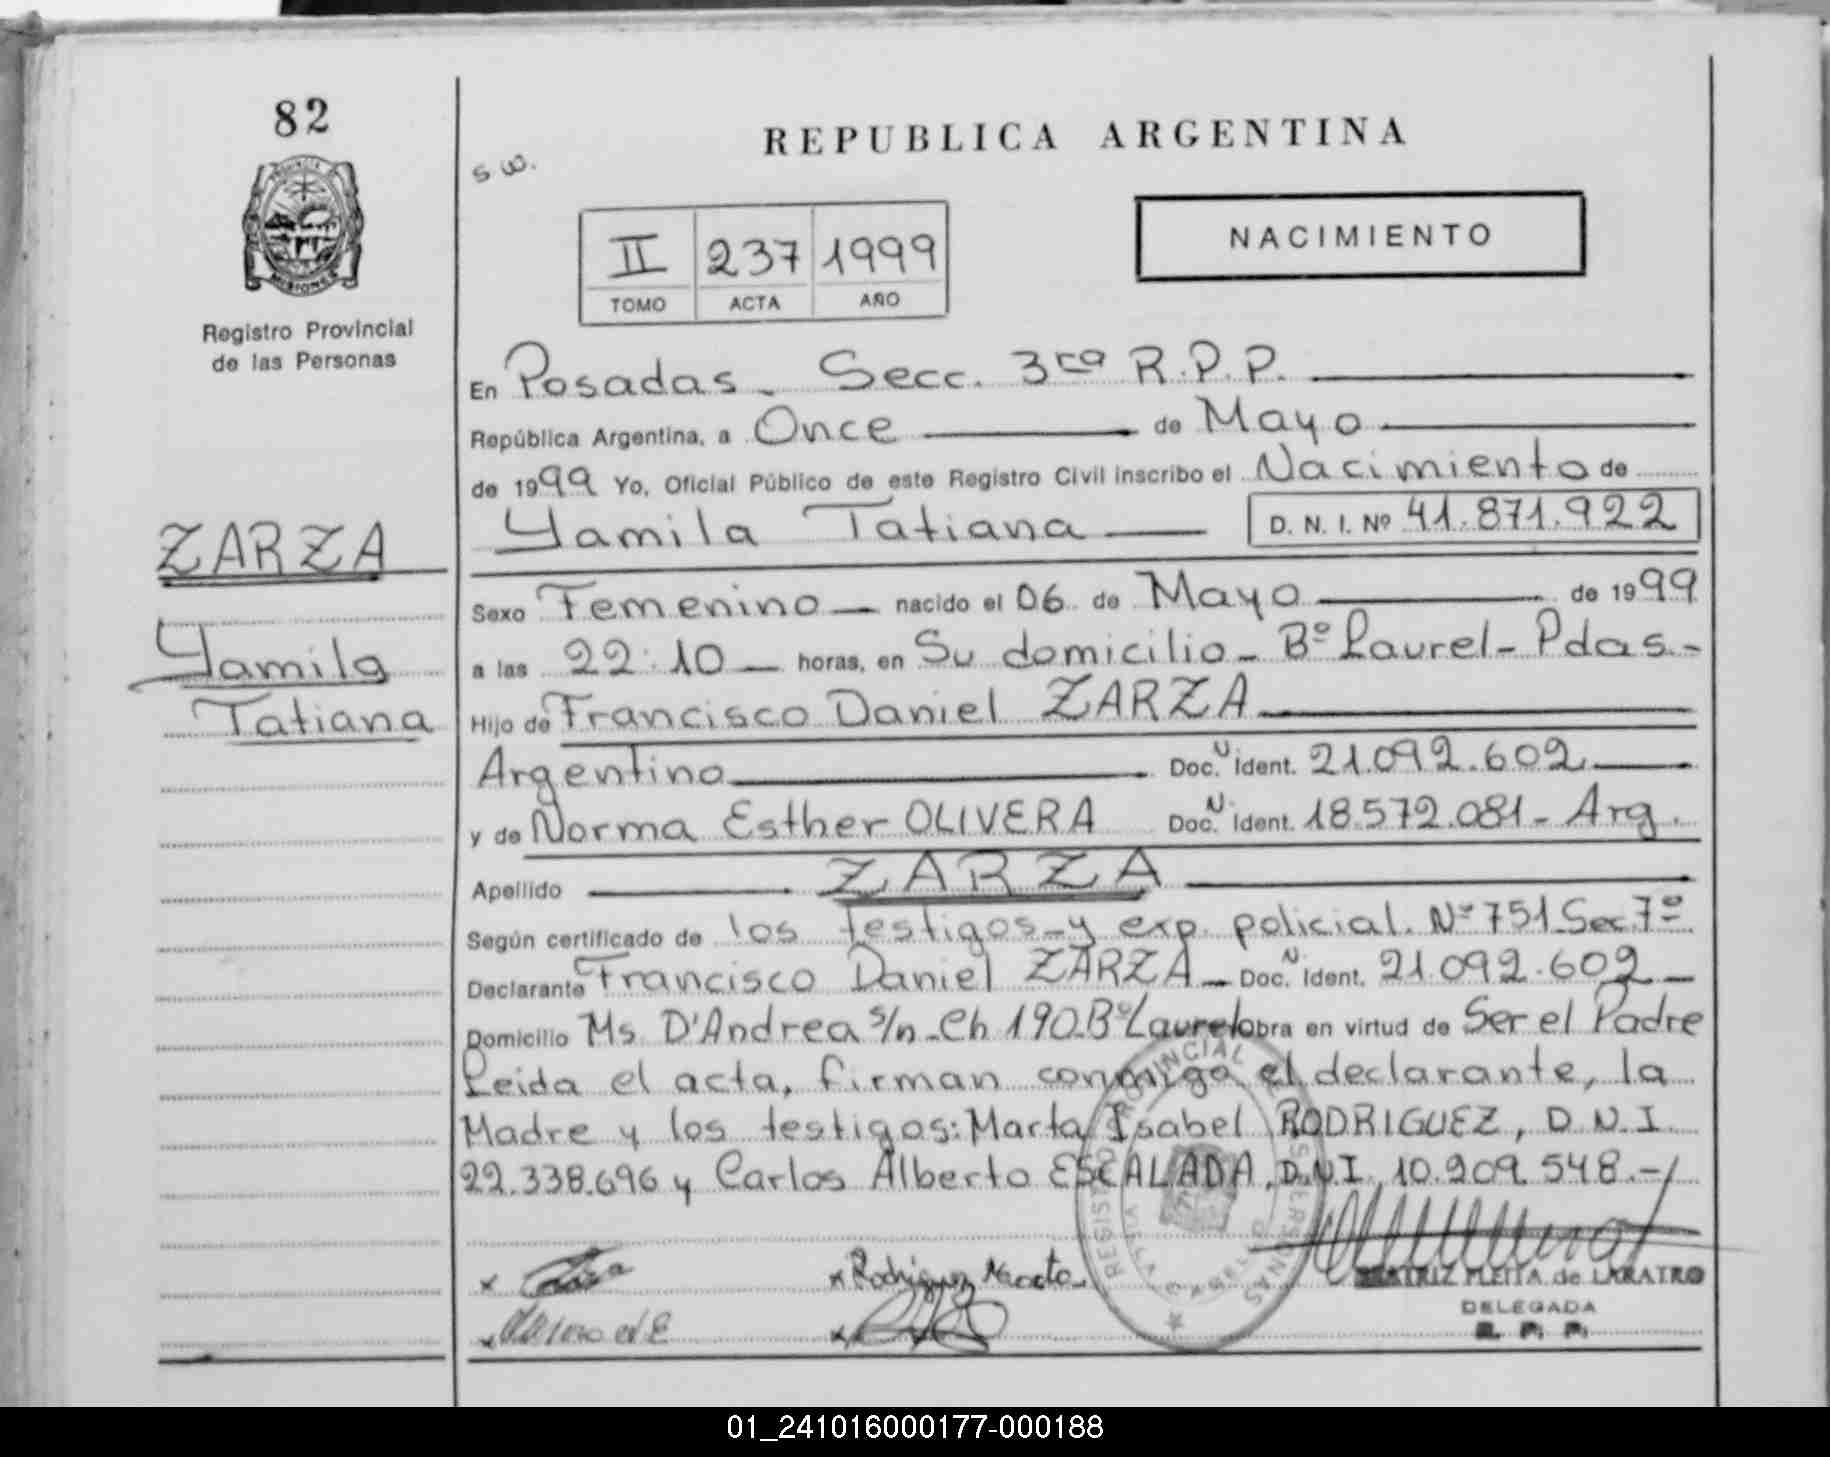 82
PROVINCIA
MISIONES
Registro Provincial
de las Personas
ZARZA
Yamila
Tatiana
REPUBLICA ARGENTINA
s w.
II 237 1999
TOMO ACTA AÑO
NACIMIENTO
En Posadas - Secc. 3ra R.P.P.
República Argentina, a Once de Mayo
de 1999 Yo, Oficial Público de este Registro Civil inscribo el Nacimiento de
Yamila Tatiana D. N. I. Nº 41.871.922
Sexo Femenino nacido el 06 de Mayo de 1999
a las 22:10 horas, en Su domicilio - Bº Laurel - Pdas. -
Hijo de Francisco Daniel ZARZA
Argentino Doc. N Ident. 21.092.602
y de Norma Esther OLIVERA Doc. N Ident. 18.572.081 - Arg.
Apellido ZARZA
Según certificado de los testigos - y exp. policial. Nº 751 - Sec 7º
Declarante Francisco Daniel ZARZA - Doc. N Ident. 21.092.602 -
Domicilio Ms. D'Andrea s/n - Ch 190 - Bº Laurel obra en virtud de Ser el Padre
Leida el acta, firman conmigo el declarante, la
Madre y los testigos: Marta Isabel RODRIGUEZ, D.N.I.
22.338.696 y Carlos Alberto ESCALADA, D.N.I. 10.209.548.-
REGISTRO PROVINCIAL DE LAS PERSONAS
x
x Rodriguez Marta
x
x
BEATRIZ FLEITA de LARATRO
DELEGADA
R. P. P.
01_241016000177-000188